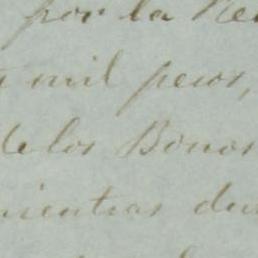 por la Re
mil pesos,
de los Bonos
mientras du